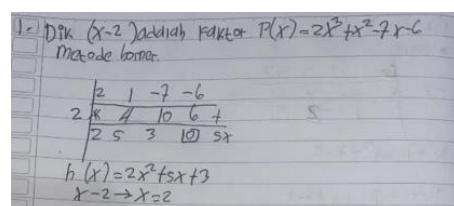 1. Dik (x-2) adalah Faktor P(x) = 2x³+x²-7x-6
Metode horner.
2 1 -7 -6
2 * 4 10 6 +
2 5 3 |0| sx
h(x) = 2x²+5x+3
x-2 → x=2